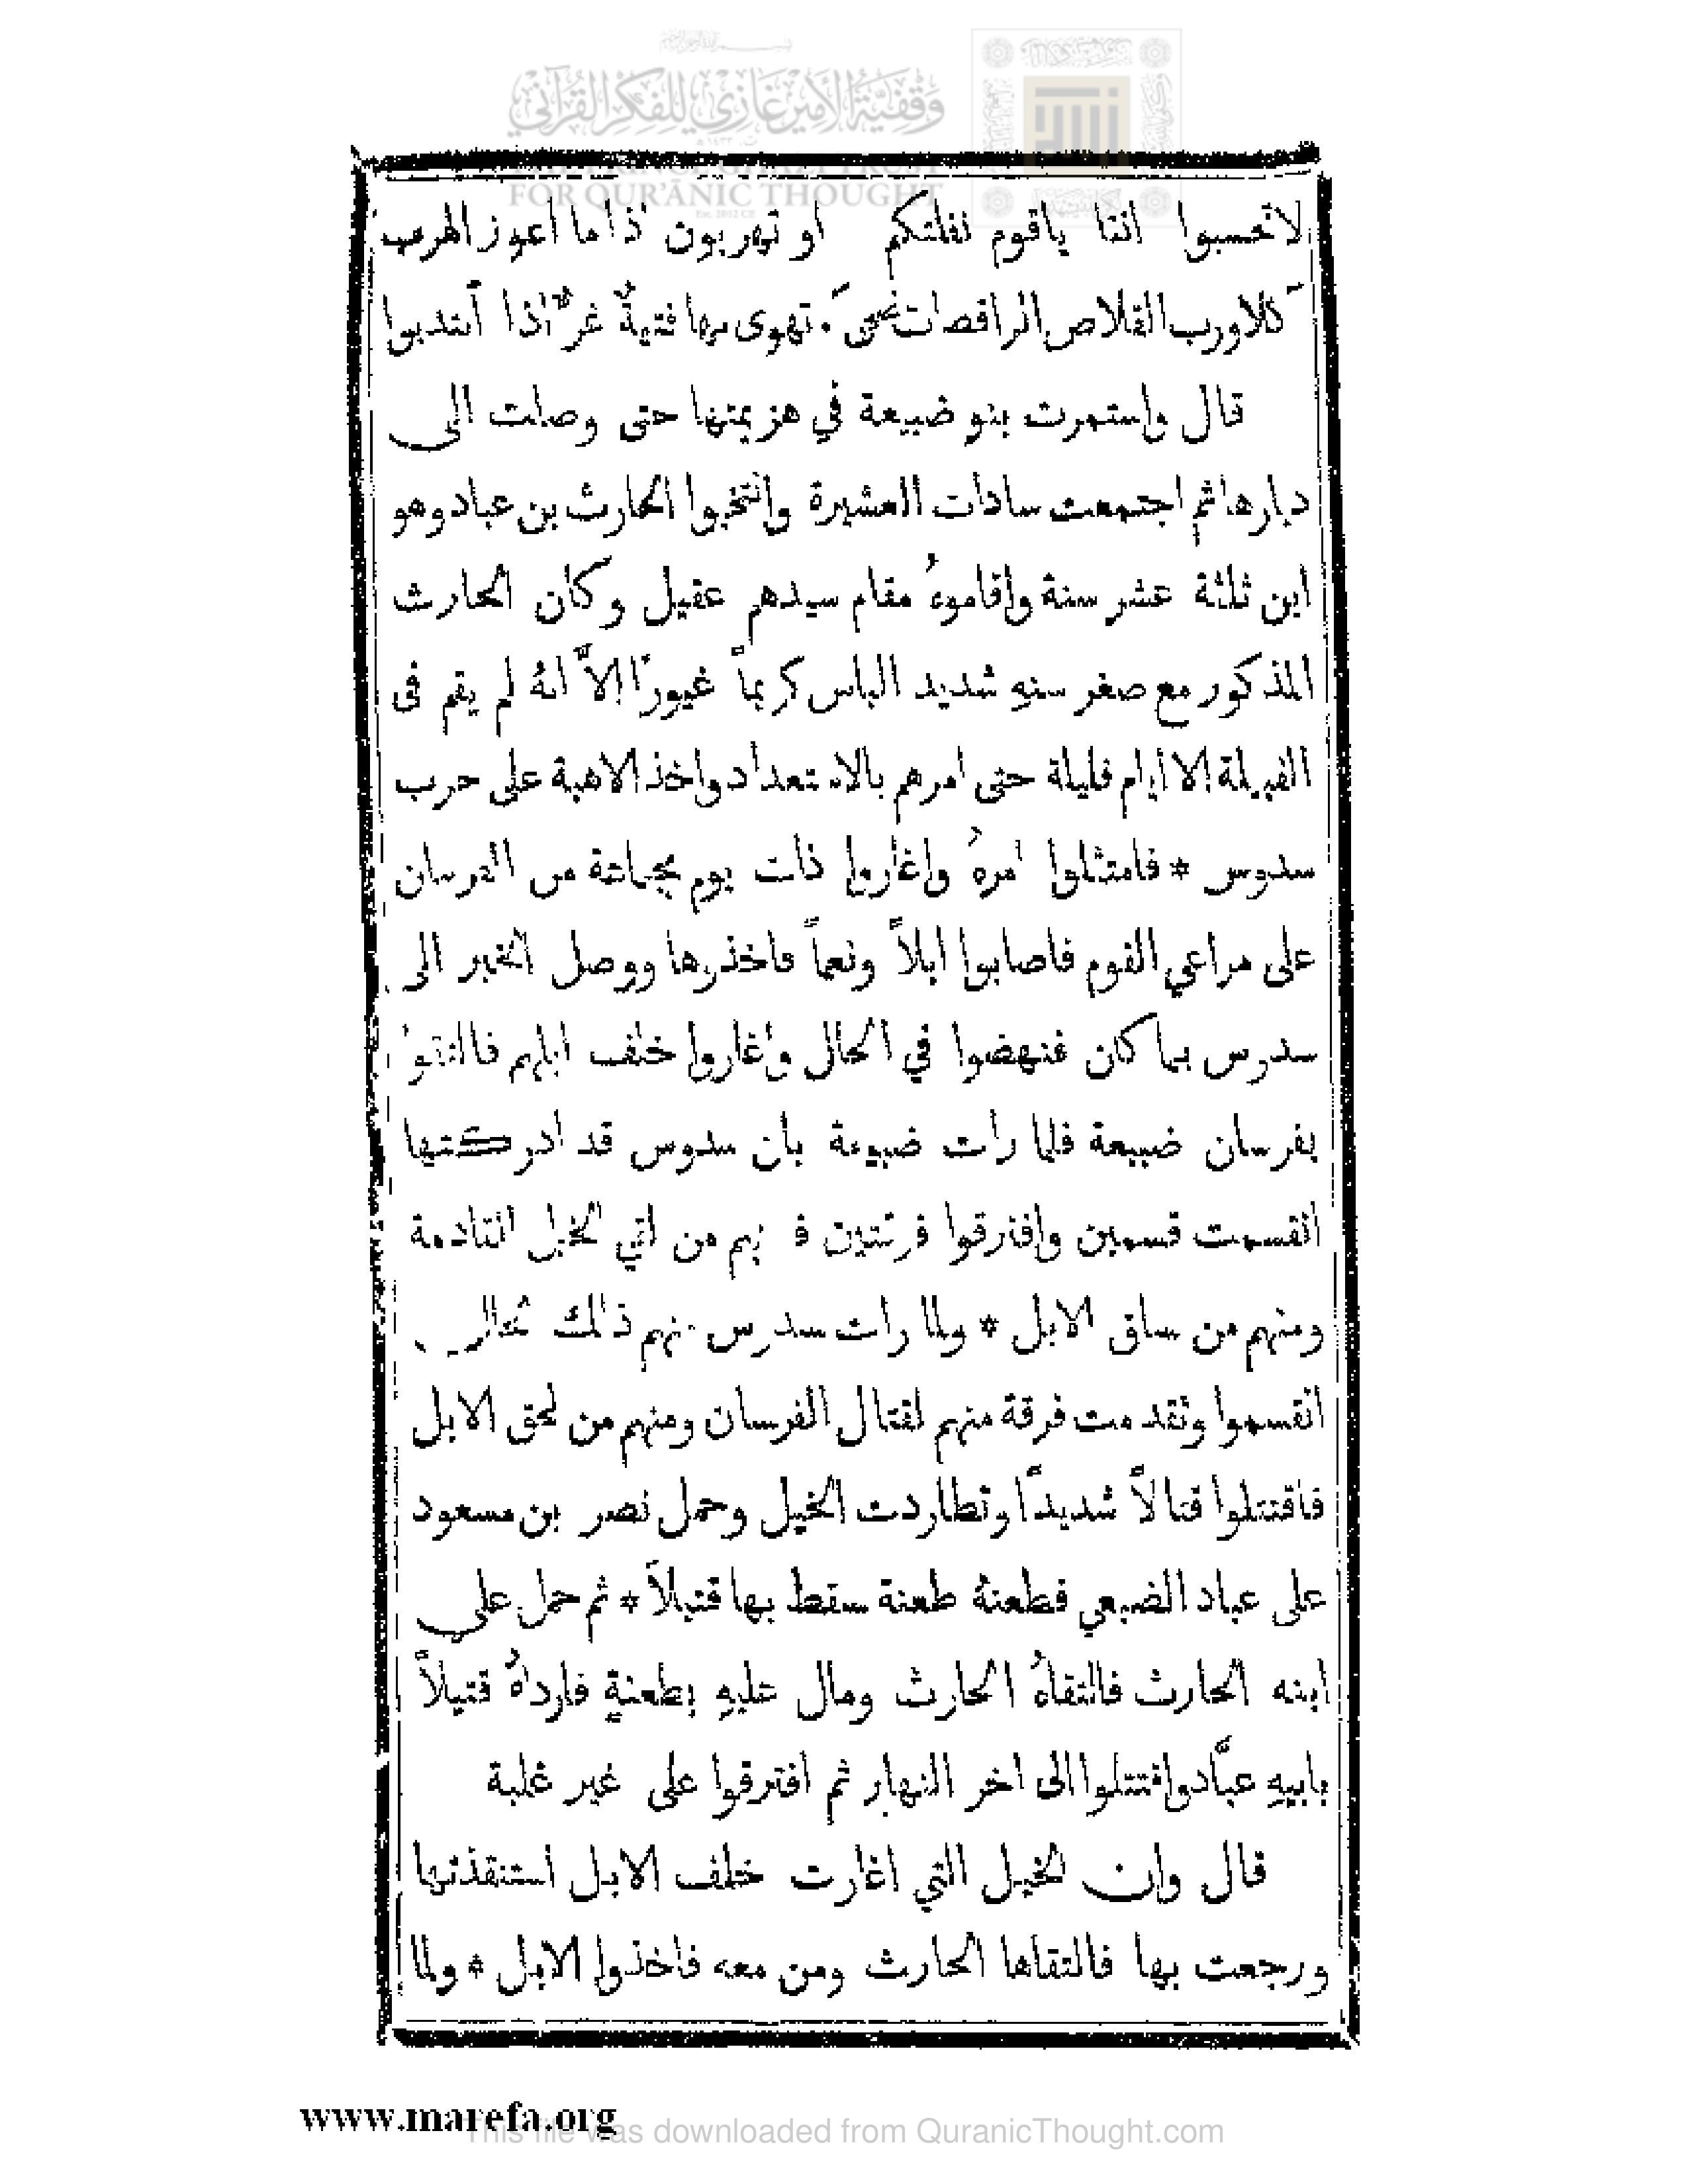 وقفية الأمير غازي للفكر القرآني
FOR QUR'ĀNIC THOUGHT
لاتحسبوا اننا ياقوم نفلتكم او تهربون اذا ما اعوز الهرب
كلا ورب القلاص الراقصات تهوى بها فتيةٌ غرٌّ اذا أنتدبوا
قال واستمرت بنو ضبيعة في هزيمتها حتى وصلت الى
ديارها ثم اجتمعت سادات العشيرة وانتخبوا الحارث بن عباد وهو
ابن ثلثة عشر سنة واقاموهُ مقام سيدهم عقيل وكان الحارث
المذكور مع صغر سنهِ شديد الباس كريماً غيورًا الاَّ انهُ لم يقم فى
القبيلة الا ايام قليلة حتى امرهم بالاستعداد واخذ الاهبة على حرب
سدوس * فامتثلوا امرهُ واغاروا ذات يوم بجماعة من الفرسان
على مراعي القوم فاصابوا ابلاً ونعماً فاخذوها ووصل الخبر الى
سدوس بما كان فنهضوا في الحال واغاروا خلف ابلهم فالتقوا
بفرسان ضبيعة فلما رات ضبيعة بان سدوس قد ادركتها
انقسمت قسمين وافترقوا فرقتين فمنهم من لقي الخيل القادمة
ومنهم من ساق الابل * ولما رات سدوس منهم ذلك
انقسموا وتقدمت فرقة منهم لقتال الفرسان ومنهم من لحق الابل
فاقتتلوا قتالاً شديدًا وتطاردت الخيل وحمل نصر بن مسعود
على عباد الضبعي فطعنهُ طعنة سقط بها قتيلاً * ثم حمل على
ابنه الحارث فالتقاهُ الحارث ومال عليهِ بطعنةٍ فارداهُ قتيلاً
بابيهِ عبَّاد واقتتلوا الى اخر النهار ثم افترقوا على غير غلبة
قال وان الخيل التي اغارت خلف الابل استنقذتها
ورجعت بها فالتقاها الحارث ومن معه فاخذوا الابل * ولما
www.marefa.org
This file was downloaded from QuranicThought.com